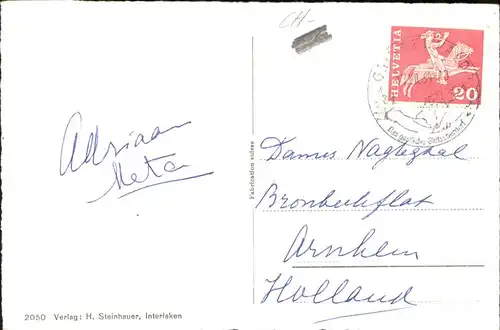 CH-
HELVETIA
20
Das gastliche Gletscherdorf
Adriaan
Meta
Fabrication suisse
Dames Nagtegaal
Bronbeekflat
Arnhem
Holland
2050 Verlag: H. Steinhauer, Interlaken